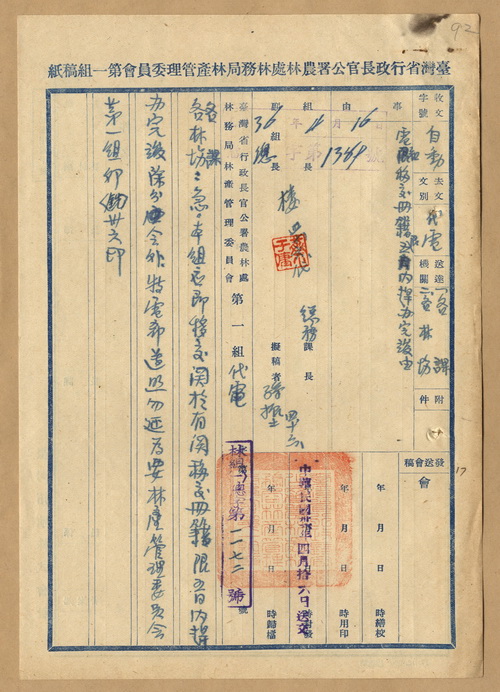 92
臺灣省行政長官公署農林處林務局林產管理委員會第一組稿紙
收文字號
自動
去文文別
代電
送達機關
一各課
二各林場
附件
事由
電限移交冊籍五日內提办完竣由
年 月
36 4 16
字第1364號
組長
副組長
課長
總務
擬稿者
會
發送會稿
17
年 月 日 時繕校
年 月 日 時用印
年 月 日
年 月 日 時歸檔
中華民國
四月拾六日送文
臺灣省行政長官公署農林處
林務局林產管理委員會
第一組代電
字第一一七二號
各課
各林場：急。本組
即移交關於有関移交冊籍限五日內提
办完竣除分令外特電希遵照勿延為要林產管理委員会
第一組卯
印